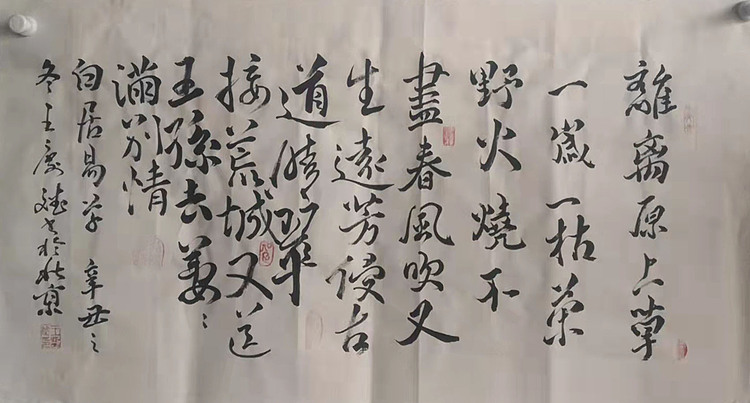 離離原上草
一歲一枯榮
野火燒不
盡春風吹又
生遠芳侵古
道晴翠
接荒城又送
王孫去萋〻
滿別情
白居易草 辛丑之
冬王慶斌書於北京